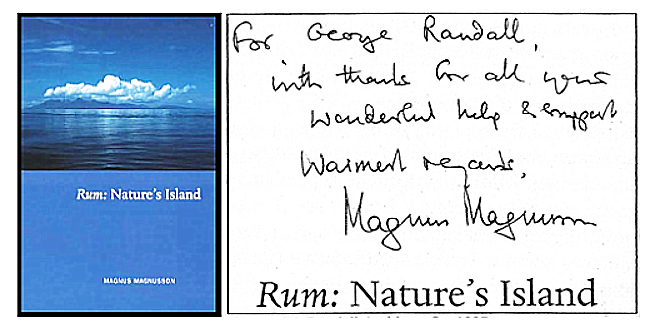 Rum: Nature's Island
MAGNUS MAGNUSSON
For George Randall,
with thanks for all your
wonderful help & support
Warmest regards,
Magnus Magnusson
Rum: Nature's Island